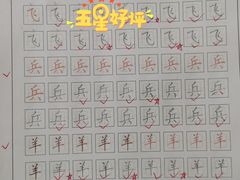 飞 飞 飞 飞 飞 飞
五星好评
飞 飞 飞 飞 飞 飞 飞 飞
兵 兵 兵 兵 兵 兵 兵 兵
兵 兵 兵 兵 兵 兵 兵 兵
兵 兵 兵 兵 兵 兵 兵 兵
羊 羊 羊 羊 羊 羊 羊 羊
羊 羊 羊 羊 羊 羊 羊 羊